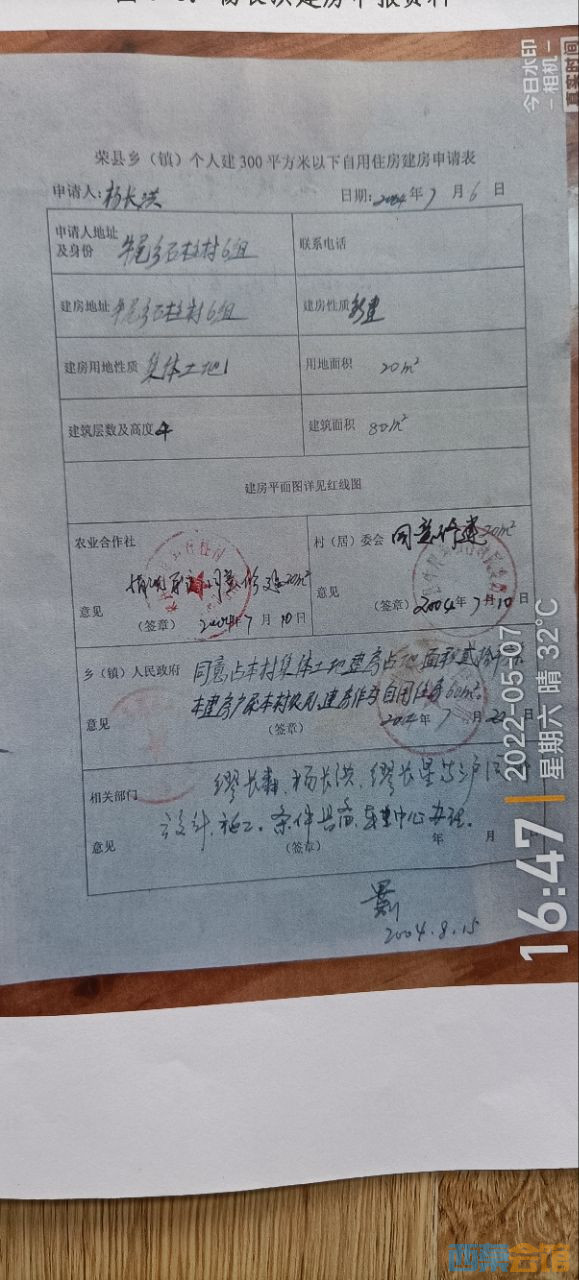 杨长洪建房申报资料
荣县乡（镇）个人建300平方米以下自用住房建房申请表
申请人:杨长洪 日期:2004年7月6日
申请人地址及身份 牛尾乡石柱村6组 联系电话
建房地址 牛尾乡石柱村6组 建房性质 新建
建房用地性质 集体土地 用地面积 20m²
建筑层数及高度 4 建筑面积 80m²
建房平面图详见红线图
农业合作社 村（居）委会 同意修建20m²
同意修建20m²
意见 意见
（签章） 2004年7月10日 （签章） 2004年7月10日
乡（镇）人民政府 同意占本村集体土地建房占地面积贰拾
本建房户系本村农户,建房作为自用住房60m²。
意见 （签章） 2004年7月22日
相关部门 缪长森、杨长洪、缪长星等三户
设计、施工。条件具备,中心办理。
意见 （签章） 年 月
2004.8.15
今日水印
-相机-
真实时间
16:47
2022-05-07
星期六 晴 32°C
西菜会馆